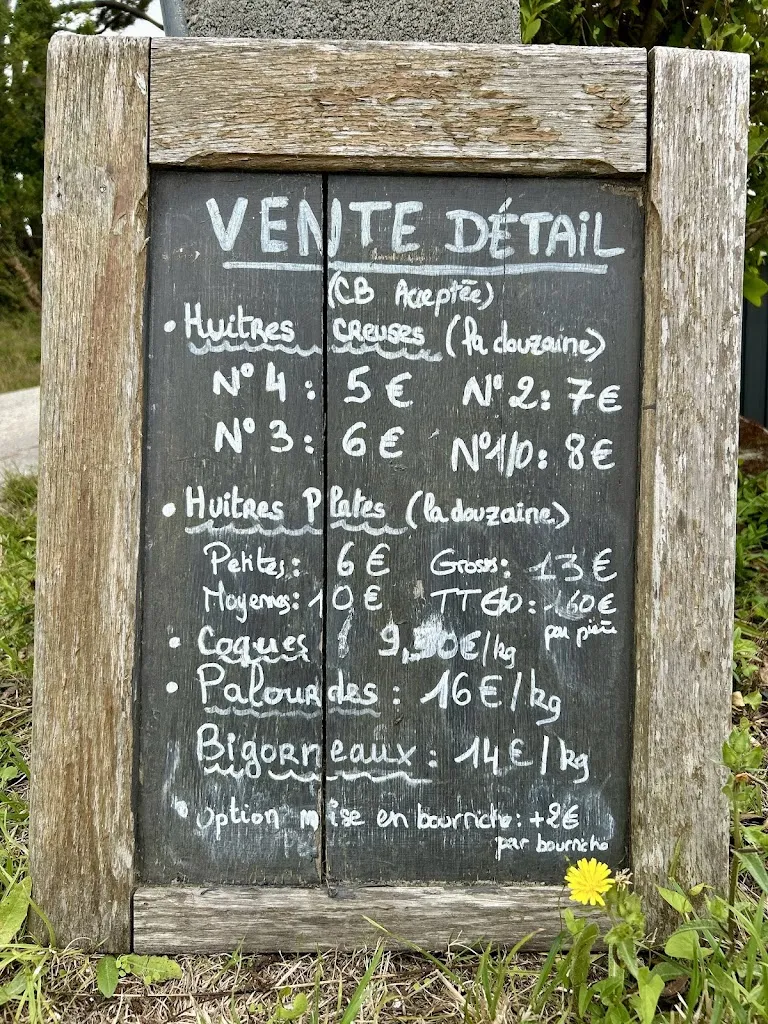 VENTE DÉTAIL
(CB Acceptée)
• Huitres creuses (la douzaine)
N° 4 : 5 € N° 2 : 7 €
N° 3 : 6 € N° 1/0 : 8 €
• Huitres Plates (la douzaine)
Petites : 6 € Grosses : 13 €
Moyennes : 10 € TT GO : 1.60 €
par pièce
• Coques : 9,50 €/kg
• Palourdes : 16 €/kg
Bigorneaux : 14 €/kg
• Option mise en bourriche : +2 €
par bourriche